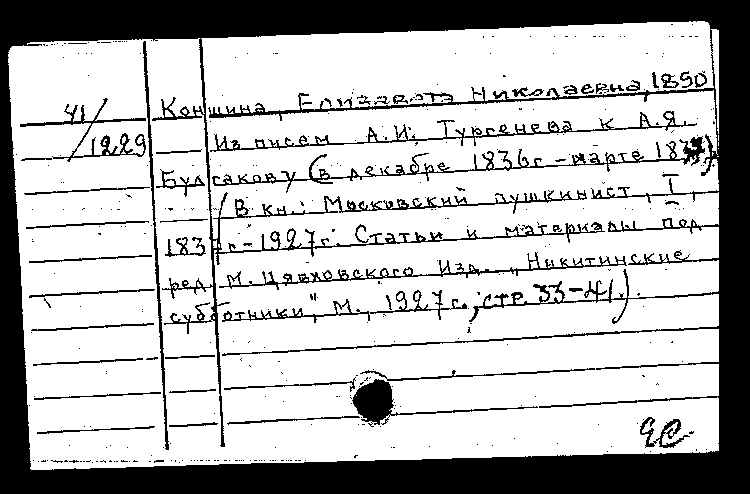 41/
1229
Коншина, Елизавета Николаевна, 1890
Из писем А.И. Тургенева к А.Я.
Булгакову (в декабре 1836г – марте 1837)
(В кн.: Московский пушкинист, I,
1837г – 1927г. Статьи и материалы под
ред. М. Цявловского Изд. „Никитинские
субботники", М., 1927г., стр. 33–41.).